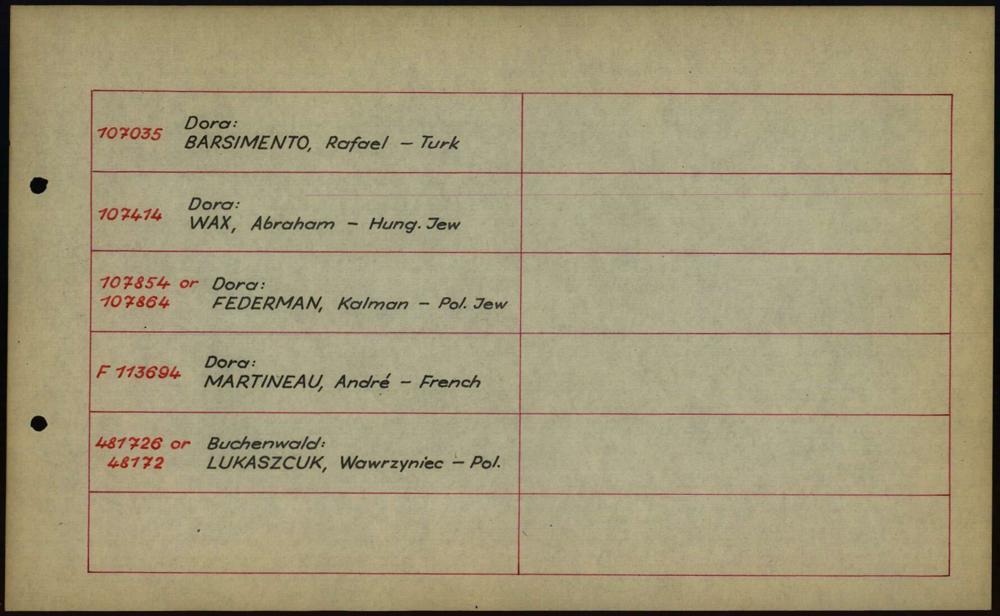 107035 Dora:
BARSIMENTO, Rafael – Turk
107414 Dora:
WAX, Abraham – Hung. Jew
107854 or Dora:
107864 FEDERMAN, Kalman – Pol. Jew
F 113694 Dora:
MARTINEAU, André – French
481726 or Buchenwald:
48172 LUKASZCUK, Wawrzyniec – Pol.